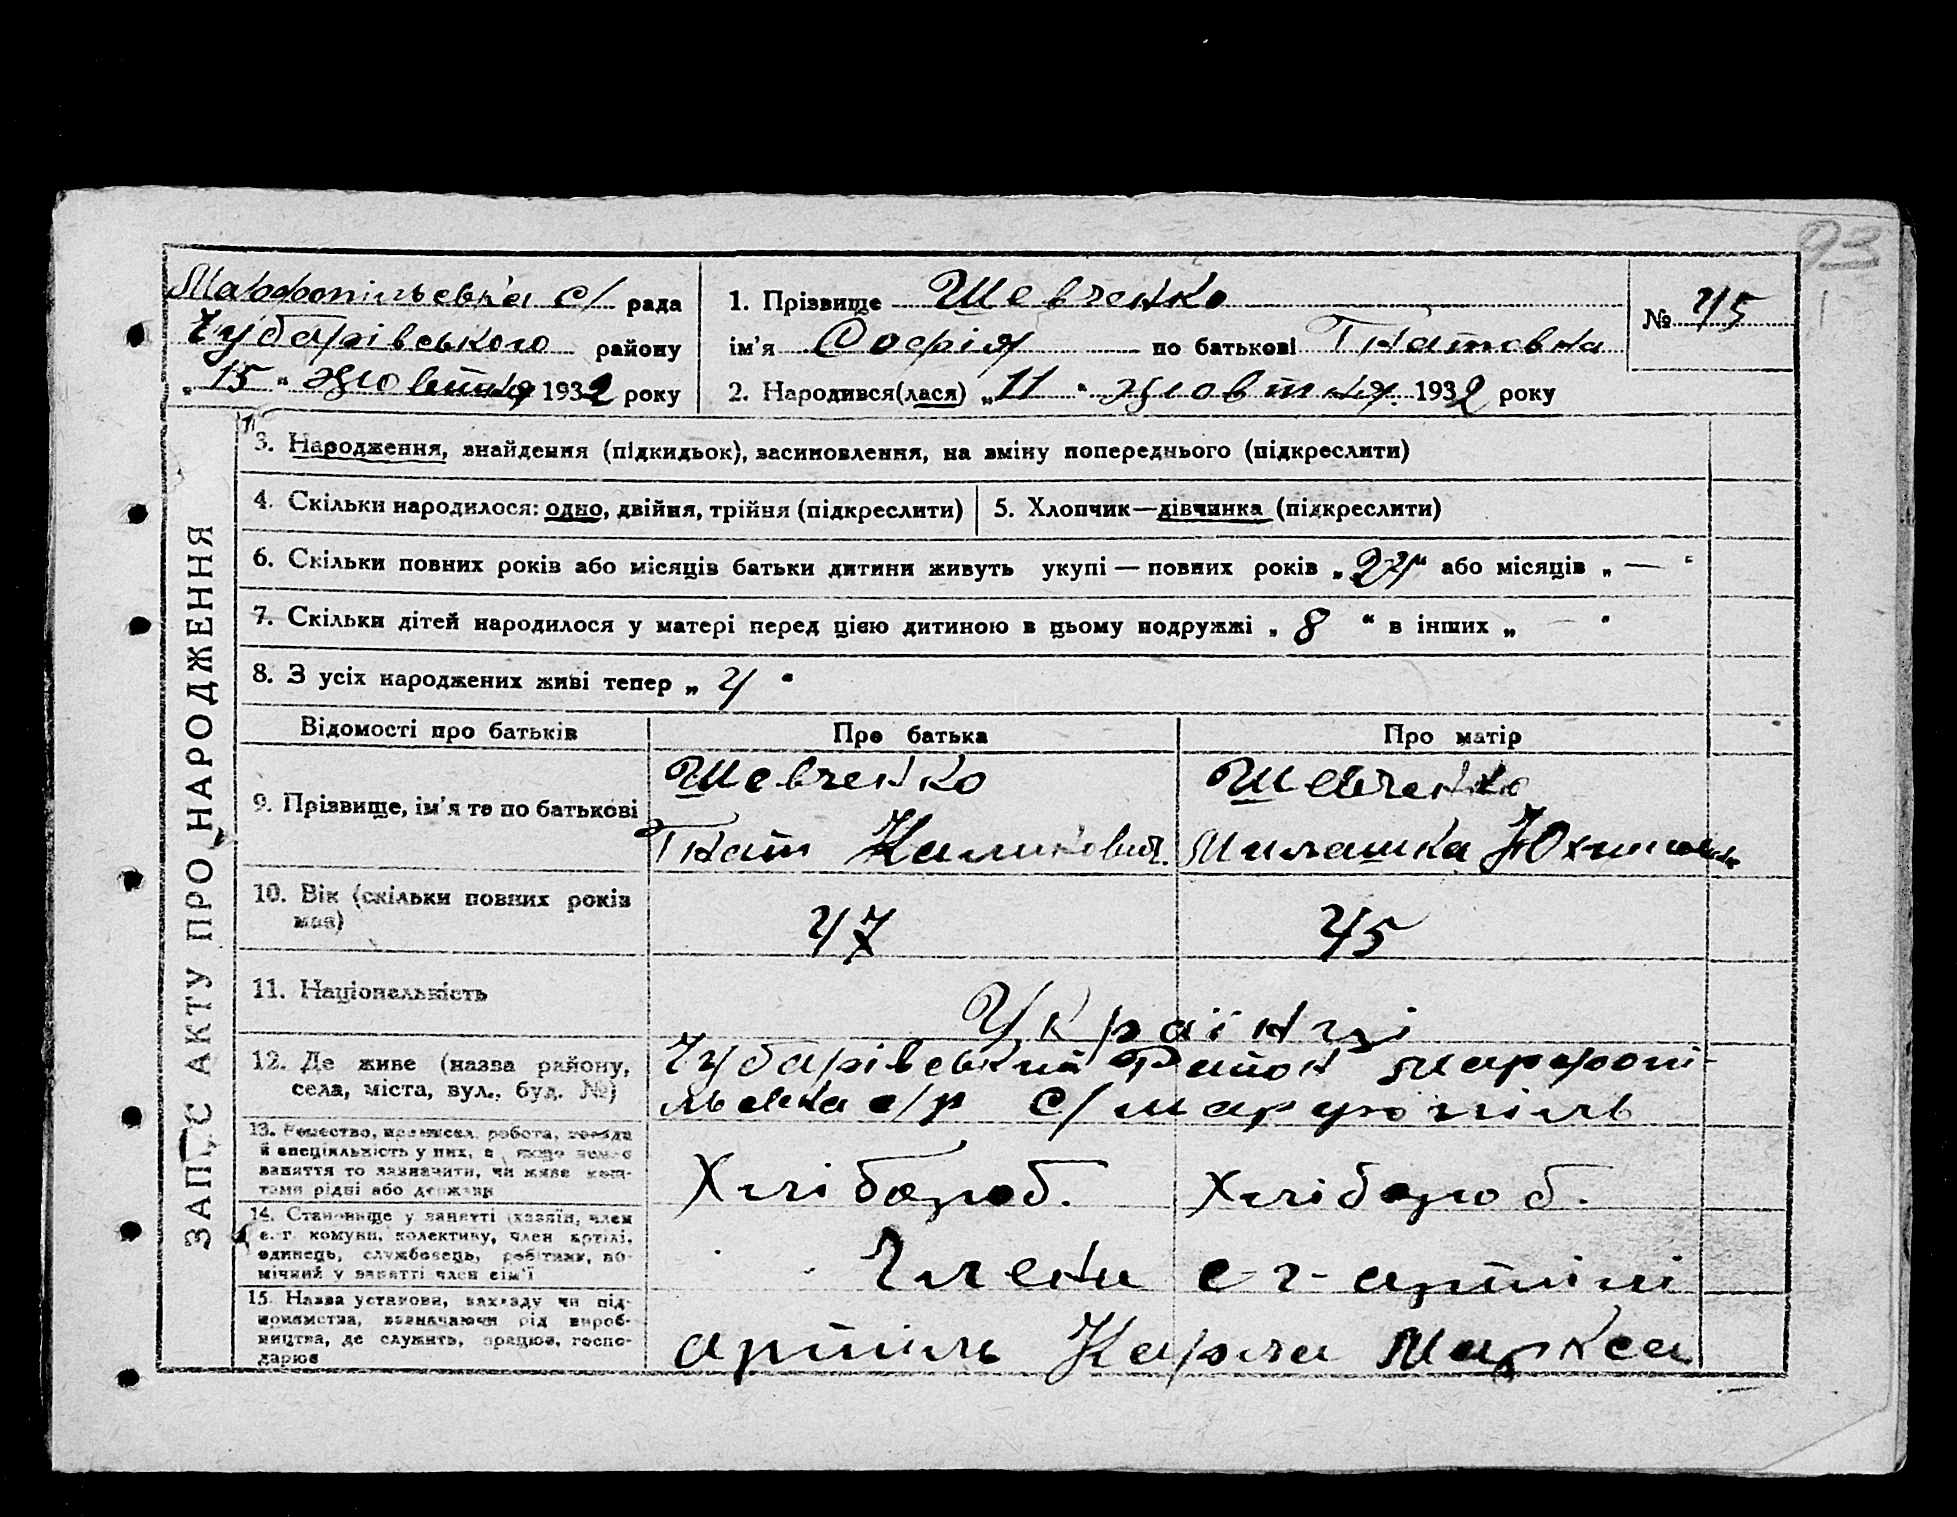 93
Марфопільська с/ рада
Чубарівського району
„15" жовтня 1932 року
1. Прізвище Шевченко
ім'я Софія по батькові Гнатовна
2. Народився(лася) „11" жовтня 1932 року
№ 45
ЗАПИС АКТУ ПРО НАРОДЖЕННЯ
3. Народження, знайдення (підкидьок), засиновлення, на зміну попереднього (підкреслити)
4. Скільки народилося: одно, двійня, трійня (підкреслити)
5. Хлопчик—дівчинка (підкреслити)
6. Скільки повних років або місяців батьки дитини живуть укупі — повних років „24" або місяців „ — "
7. Скільки дітей народилося у матері перед цією дитиною в цьому подружжі „ 8 " в інших „ — "
8. З усіх народжених живі тепер „ 4 "
Відомості про батьків
Про батька
Про матір
9. Прізвище, ім'я та по батькові
Шевченко
Гнат
Шевченко
Юхимовна
10. Вік (скільки повних років має)
47
45
11. Національність
Українці
12. Де живе (назва району,
села, міста, вул., буд. №)
Чубарівський район марфопі-
льська с/р с/марфопіль
13. Ремество, промисел, робота, посада
й спеціяльність у них, а якщо немає
заняття то зазначити, чи живе кош-
тами рідні або держави
Хлібороб.
Хлібороб.
14. Становище у занятті (хазяїн, член
с.-г. комуни, колективу, член артілі,
одинець, службовець, робітник, по-
мічний у занятті член сім'ї
Члени с-г-артілі
15. Назва установи, закладу чи під-
приємства, зазначаючи рід вироб-
ництва, де служить, працює, госпо-
дарює
артіль Карла Маркса